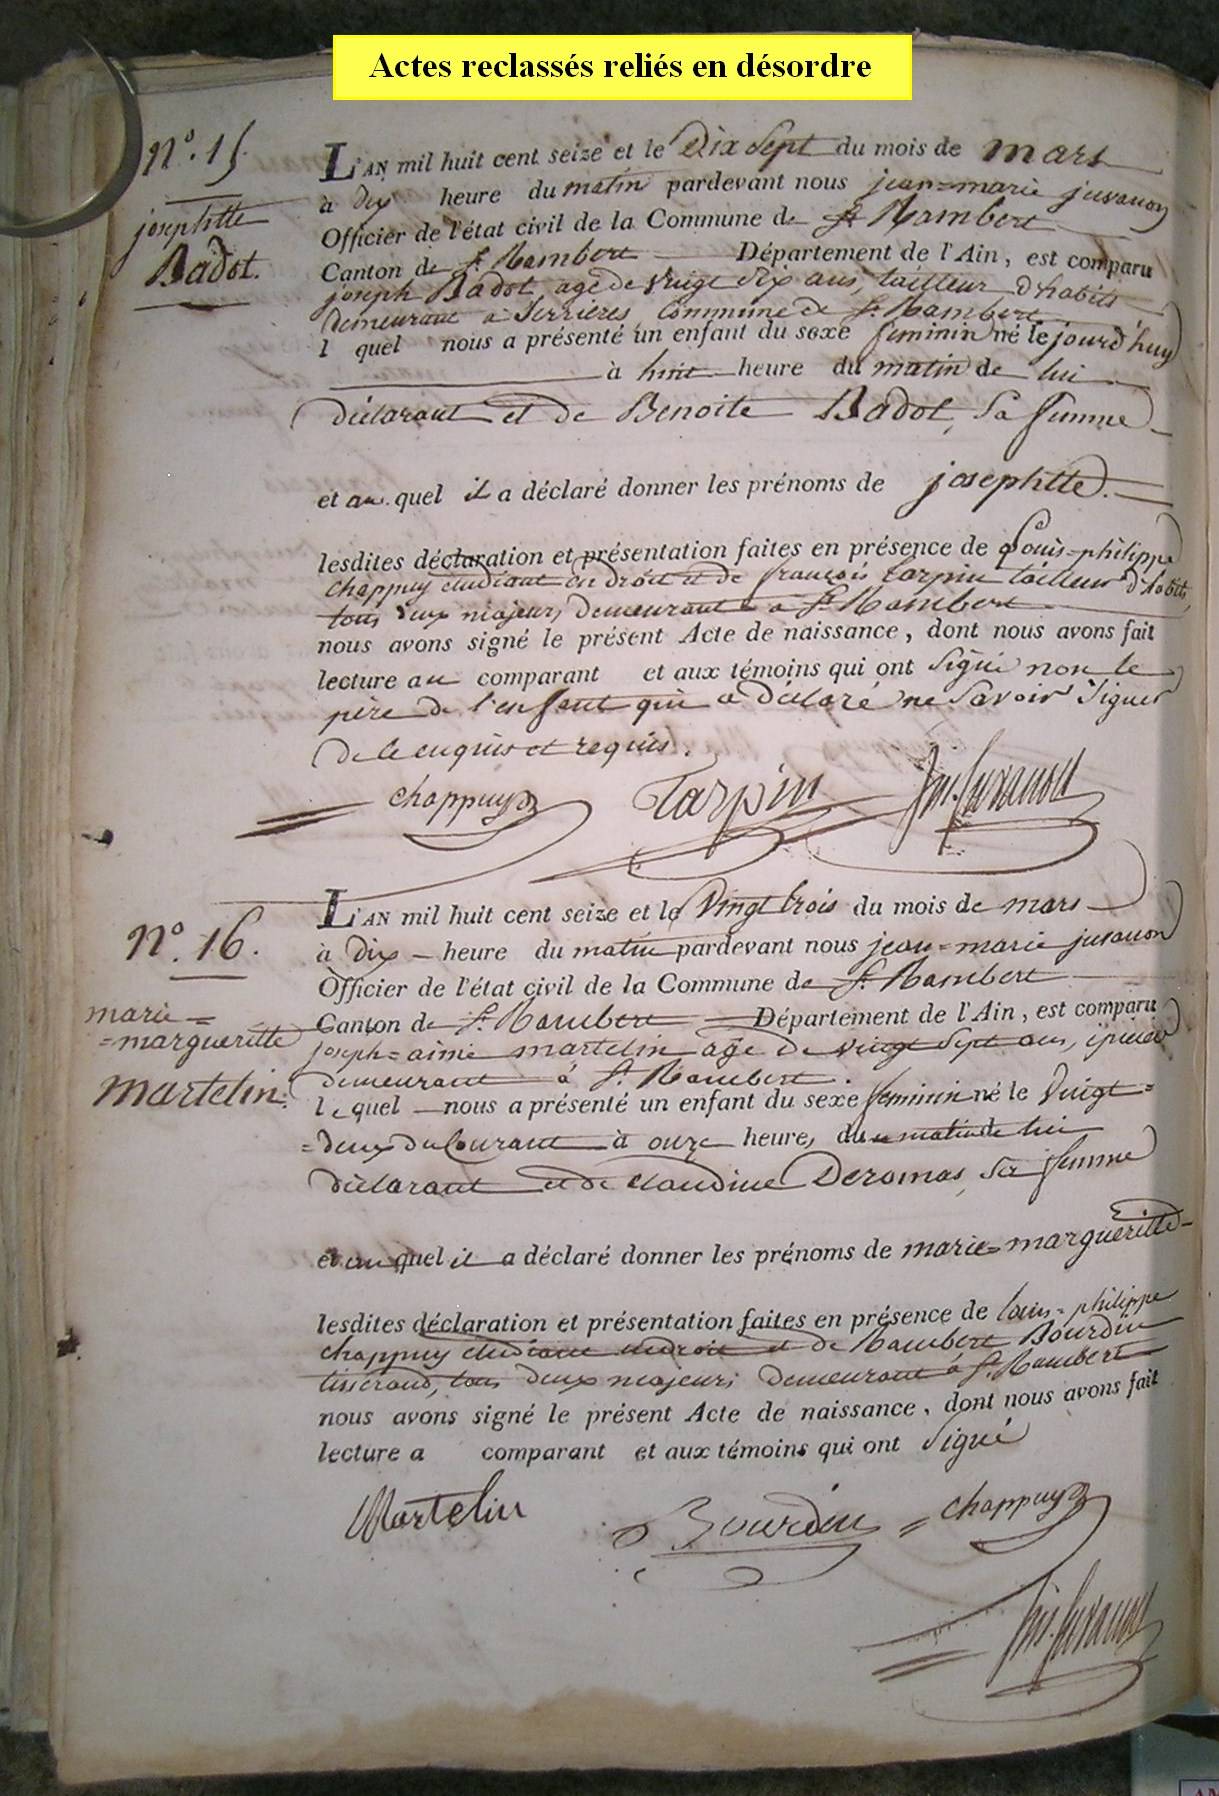 Actes reclassés reliés en désordre
N°. 15.
josephtte
Badot.
L'AN mil huit cent seize et le Dix Sept du mois de mars
à dix heure du matin pardevant nous jean=marie juvanon
Officier de l'état civil de la Commune de St Rambert
Canton de St Rambert Département de l'Ain, est comparu
joseph Badot agé de vingt dix ans, tailleur d'habits
demeurant à Serrieres, Commune de St Rambert
l quel nous a présenté un enfant du sexe feminin né le jourd'huy
à huit heure du matin de lui
déclarant et de Benoite Badot, sa femme
et au quel il a déclaré donner les prénoms de josephtte.
lesdites déclaration et présentation faites en présence de Louis=philippe
chappuy étudiant en droit et de françois tarpin tailleur d'habits,
tous deux majeurs demeurant à St Rambert
nous avons signé le présent Acte de naissance, dont nous avons fait
lecture au comparant et aux témoins qui ont signé non le
père de l'enfant qui a déclaré ne savoir signer
de ce enquis et requis.
chappuy Tarpin Jn. Juvanon
N°. 16.
marie=
=margueritte
Martelin.
L'AN mil huit cent seize et le Vingt trois du mois de mars
à dix heure du matin pardevant nous jean=marie juvanon
Officier de l'état civil de la Commune de St. Rambert
Canton de St. Rambert Département de l'Ain, est comparu
joseph=aimé martelin agé de vingt sept ans, épicier
demeurant à St. Rambert.
le quel nous a présenté un enfant du sexe feminin né le Vingt=
=deux du Courant à onze heure, du matin de lui
déclarant et de claudine Deromas, sa femme
et au quel il a déclaré donner les prénoms de marie=margueritte
lesdites déclaration et présentation faites en présence de louis=philippe
chappuy étudiant en droit et de Rambert Bourdin
tisserand, tous deux majeurs demeurant à St. Rambert
nous avons signé le présent Acte de naissance, dont nous avons fait
lecture a comparant et aux témoins qui ont signé
Martelin Bourdin chappuy
Jn. Juvanon